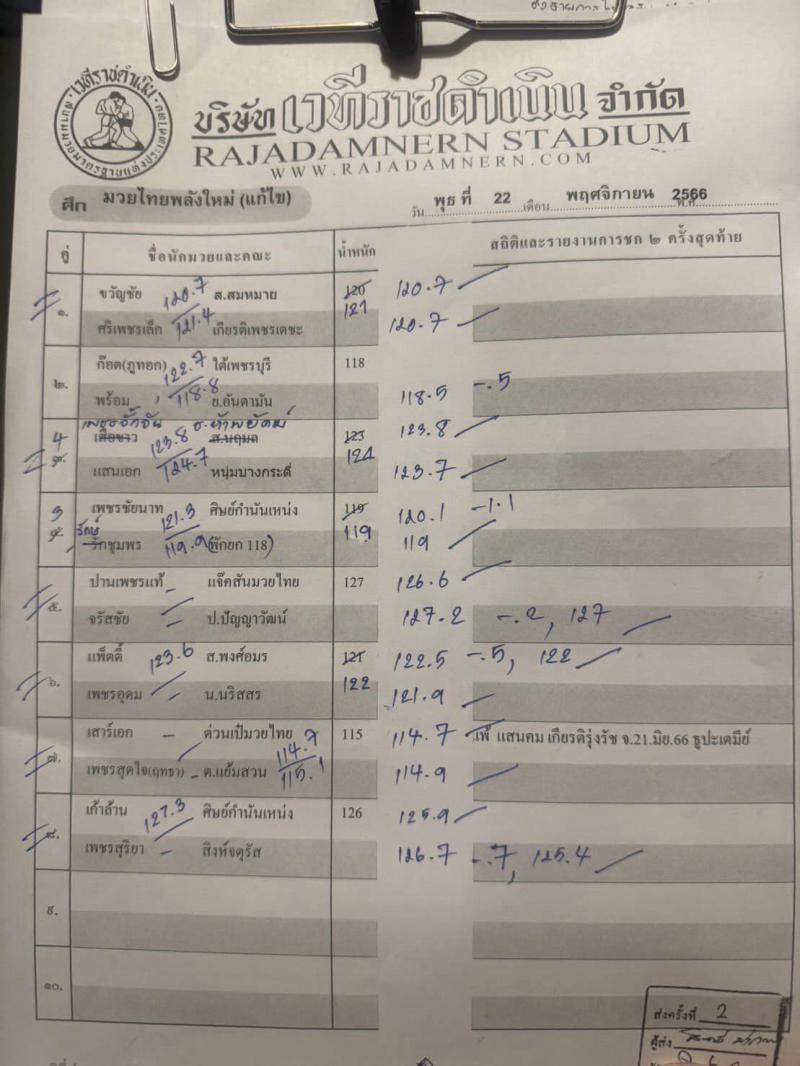 เวทีราชดำเนิน
บริษัท เวทีราชดำเนิน จำกัด
RAJADAMNERN STADIUM
WWW.RAJADAMNERN.COM
ศึก มวยไทยพลังใหม่ (แก้ไข) วัน พุธ ที่ 22 เดือน พฤศจิกายน 2566
คู่ ชื่อนักมวยและคณะ น้ำหนัก สถิติและรายงานการชก ๒ ครั้งสุดท้าย
ขวัญชัย 120.7 ส.สมหมาย 120 120.7
๑. 121
ศรีเพชรเล็ก 121.4 เกียรติเพชรเดชะ 120.7
ก๊อต(ภูทอก) 122.7 ใต้เพชรบุรี 118
๒.
พร้อม 118.8 ย.อันดามัน 118.5 -.5
4 เสือขาว 123.8 ส.นฤมล 123 123.8
124
แสนเอก 124.7 หนุ่มบางกระดี่ 123.7
3 เพชรชัยนาท 121.3 ศิษย์กำนันเหน่ง 119 120.1 -1.1
รักษ์
รักชุมพร 119.9 (พักยก 118) 119 119
ปานเพชรแท้ - แจ๊คสันมวยไทย 127 126.6
๕.
จรัสชัย ป.ปัญญาวัฒน์ 127.2 -.2, 127
แพ็ตตี้ 123.6 ส.พงศ์อมร 121 122.5 -.5, 122
๖. 122
เพชรอุดม น.นริสสร 121.9
เสาร์เอก - ด่วนเป๋มวยไทย 115 114.7 แพ้ แสนคม เกียรติรุ่งรัช จ.21.มิย.66 ธูปะเตมีย์
๗. 114.7
เพชรสุดใจ(ฤทธา) - ต.แย้มสวน 115.1 114.9
เก้าล้าน 127.3 ศิษย์กำนันเหน่ง 126 125.9
๘.
เพชรสุริยา - สิงห์จตุรัส 126.7 -.7, 125.4
๙.
๑๐.
ส่งครั้งที่ 2
ผู้ส่ง